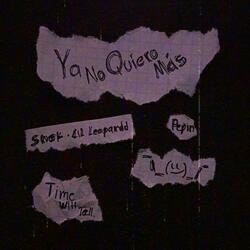 Ya No Quiero Más
Smek · Lil Leopardd
Pepin
Time
Will
Tell